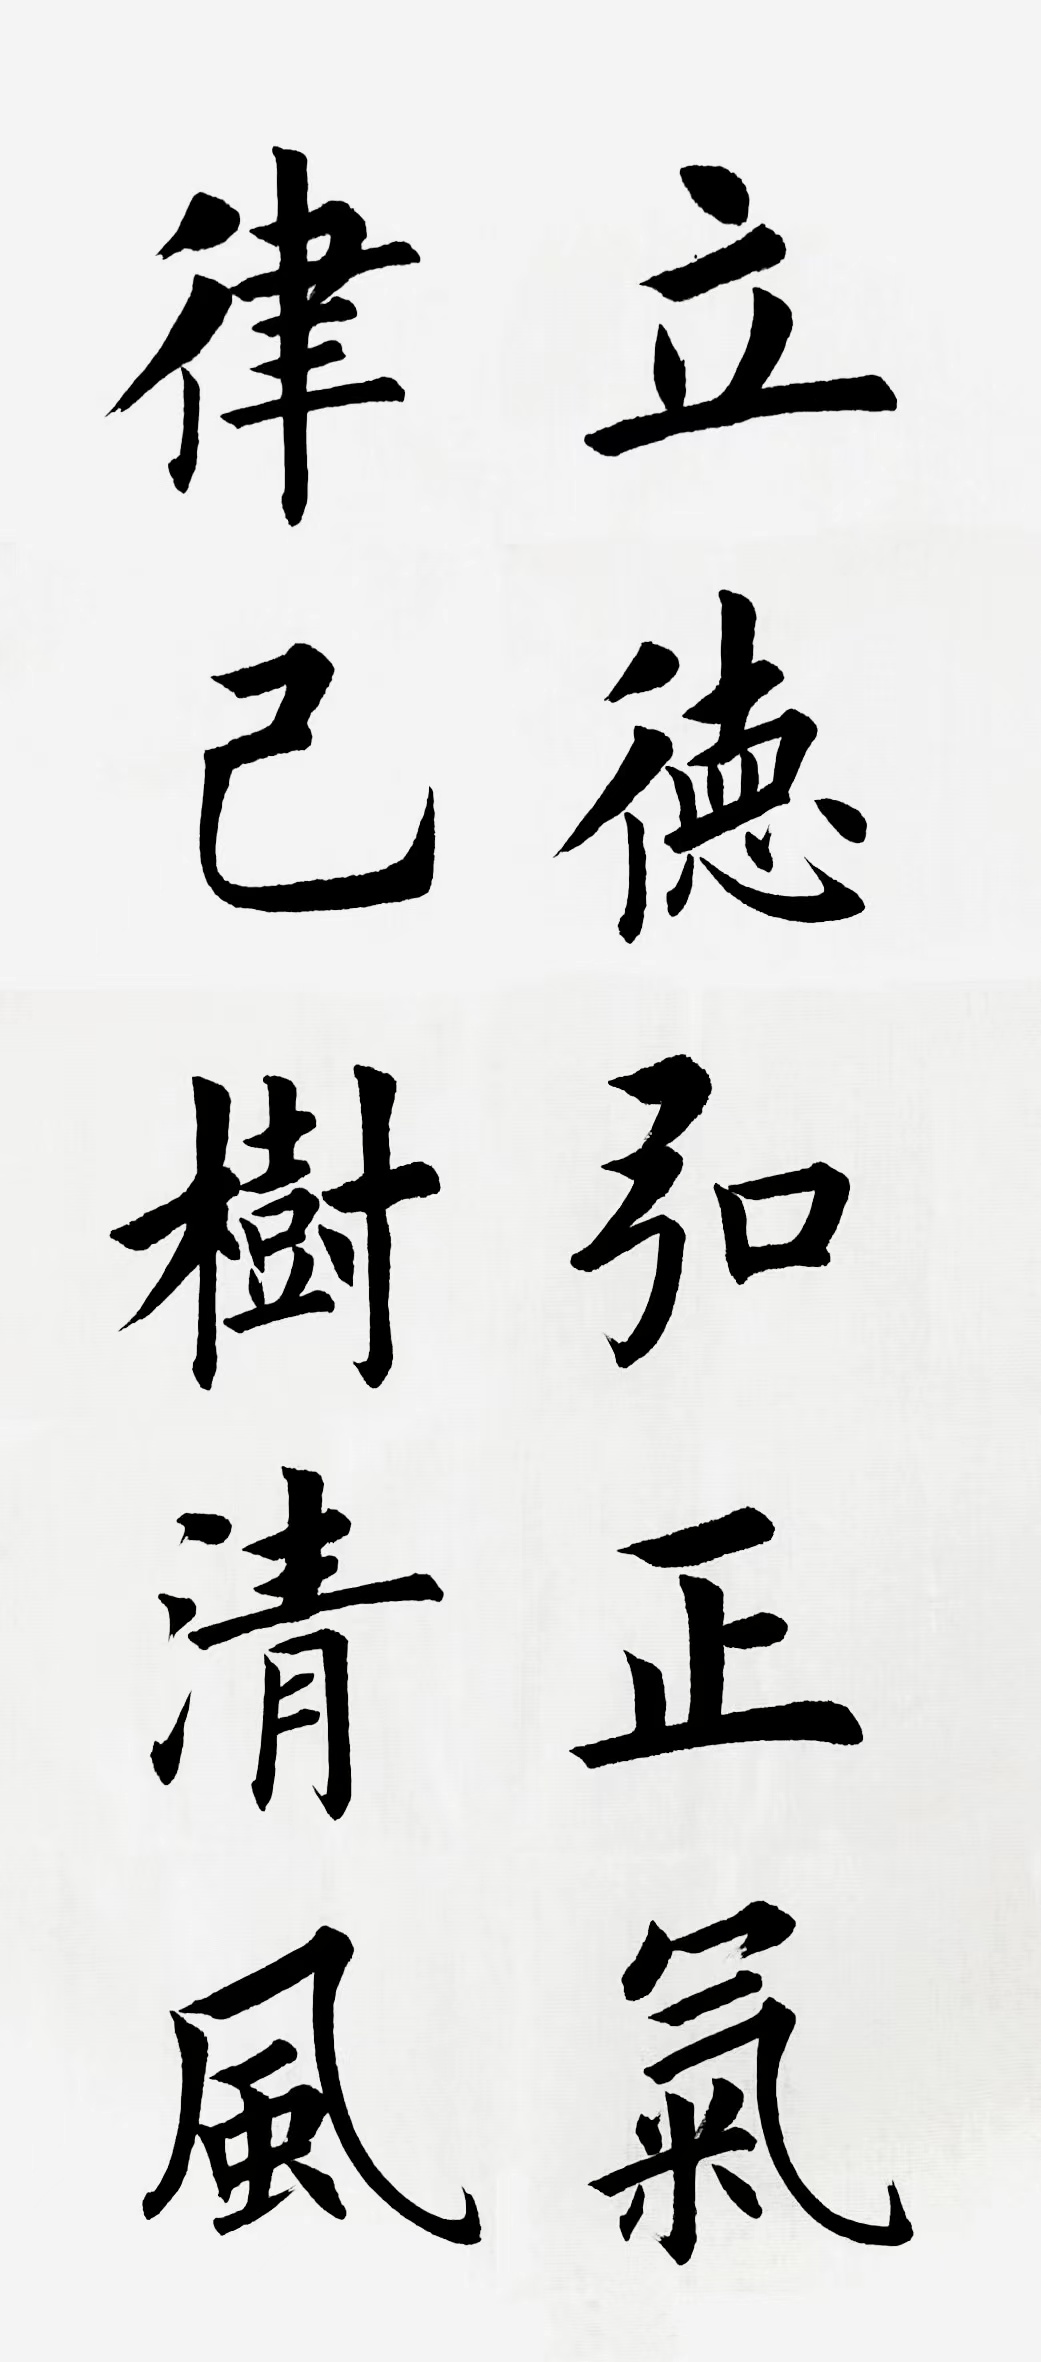 立德弘正氣
律己樹清風